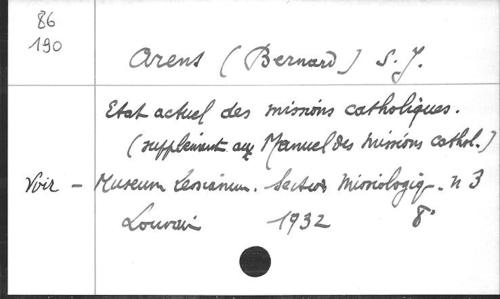 86
190
Arens (Bernard) S. J.
Etat actuel des missions catholiques.
(supplément au Manuel des missions cathol.)
Voir - Museum Lessianum. Section Missiologiq. n 3
Louvain 1932 8°